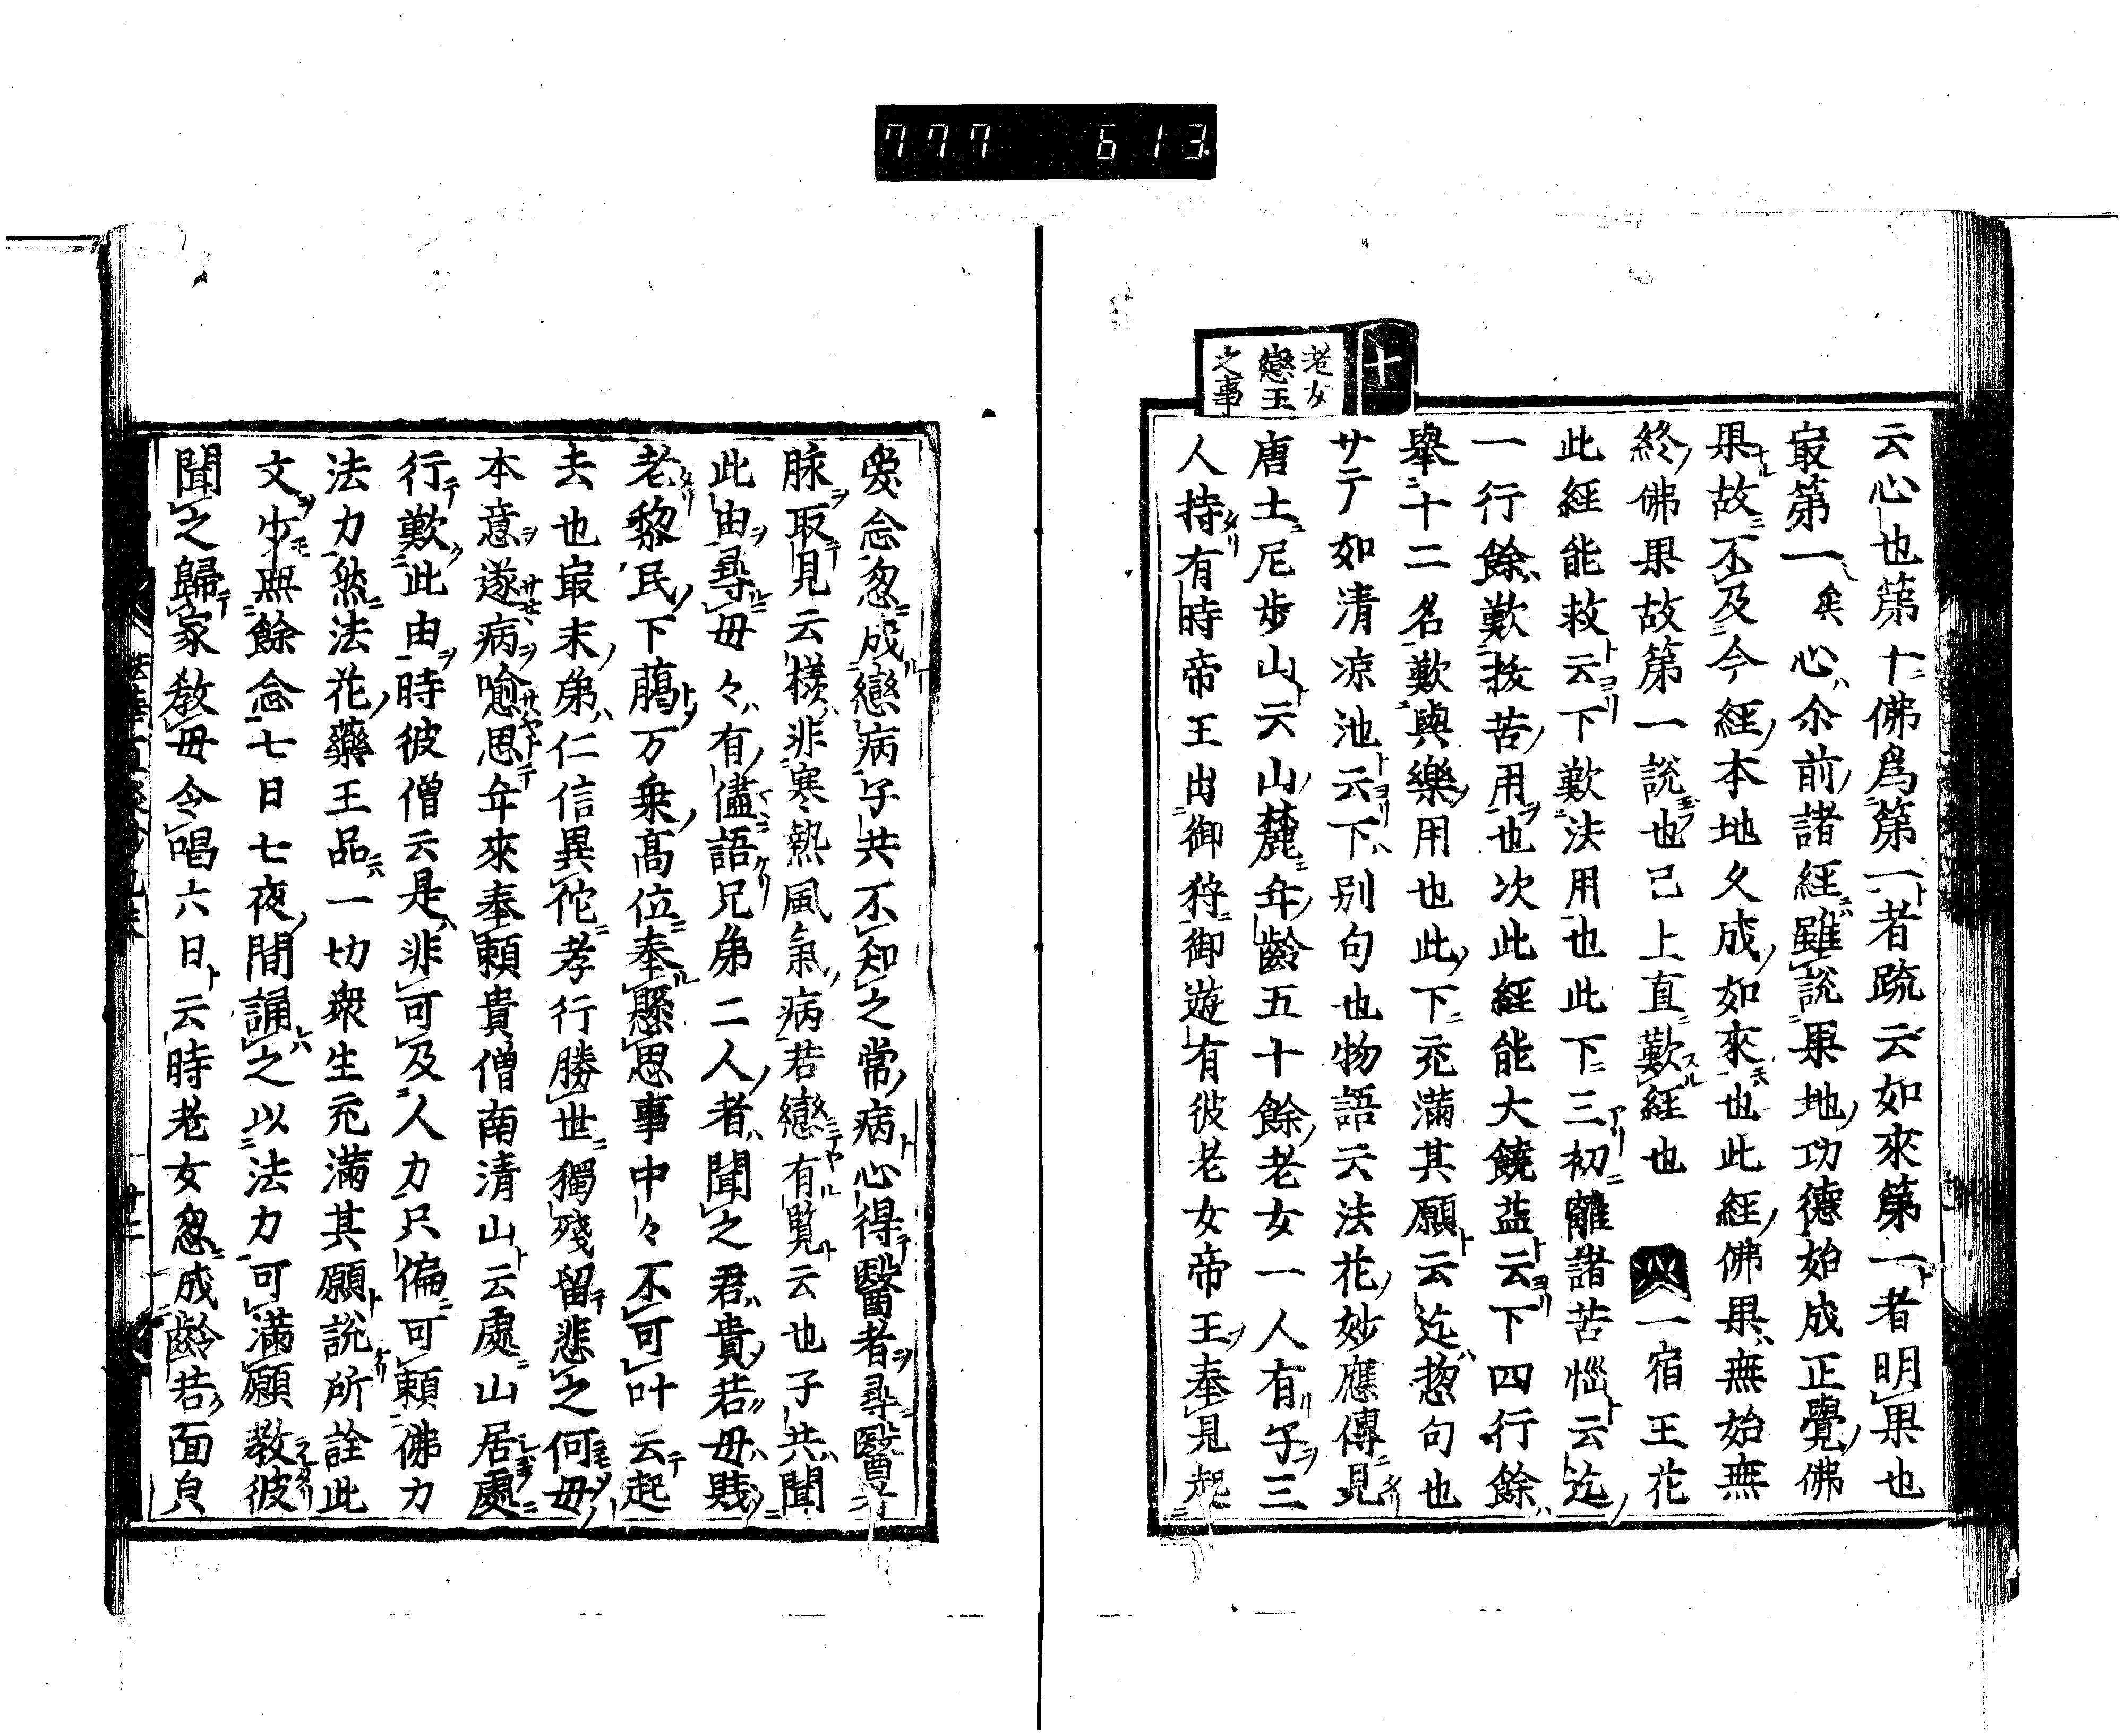 777 613.
十
老女
戀王
之事
云心也第十佛爲第一者疏云如來第一者明果也
最第一矣心尒前諸經雖說果地功德始成正覺佛
果故不及今經本地久成如來也此經佛果無始無
終佛果故第一說也已上直歎經也 一宿王花
此經能救云下歎法用也此下三初離諸苦惱云迄
一行餘歎拔苦用也次此經能大饒益云下四行餘
舉十二名歎與樂用也此下充滿其願云迄惣句也
サテ如清凉池云下別句也物語云法花妙應傳見
唐土尼步山云山麓年齡五十餘老女一人有子三
人持有時帝王出御狩御遊有彼老女帝王奉見起
愛念忽成戀病子共不知之常病心得醫者尋醫者
脉取見云樣非寒熱風氣病若戀有覽云也子共聞
此由尋母々有儘語兄弟二人者聞之君貴若母賎
老黎民下﨟万乗髙位奉懸思事中々不可叶云起
去也最末弟仁信異佗孝行勝世獨殘留悲之何母
本意遂病喻思年來奉頼貴僧南清山云處山居處
行歎此由時彼僧云是非可及人力只偏可頼佛力
法力然法花藥王品一切衆生充滿其願說所詮此
文少無餘念七日七夜間誦之以法力可滿願教彼
聞之歸家教母令唱六日云時老女忽成齡若面白